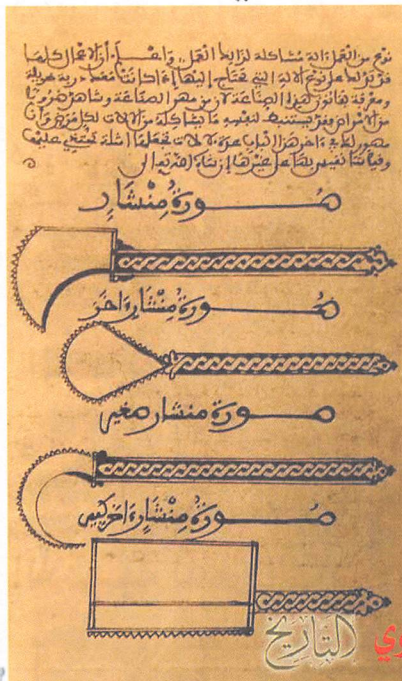 نوع من العمل ءالة مشاكلة لذلك العمل واعلم أن الاعمال كلها
قد تدلك على نوع الالة التي تحتاج إليها إذا كانت معك دربة طويلة
ومعرفة بقانون هذه الصناعة لان من مهر الصناعة وشاهد ضروبا
من الامراض فقد يستنبط لنفسه ما يشاكله من الالات لكل مرض وأنا
مصور لك في ءاخر هذا الباب عدة ءالات تجعلها امثلة تحتذي عليها
وقياسا تقيس بها على غيرها إن شاء الله تعالى
صورة منشار
صورة منشار ءاخر
صورة منشار صغير
صورة منشار ءاخر كبير
التاريخ